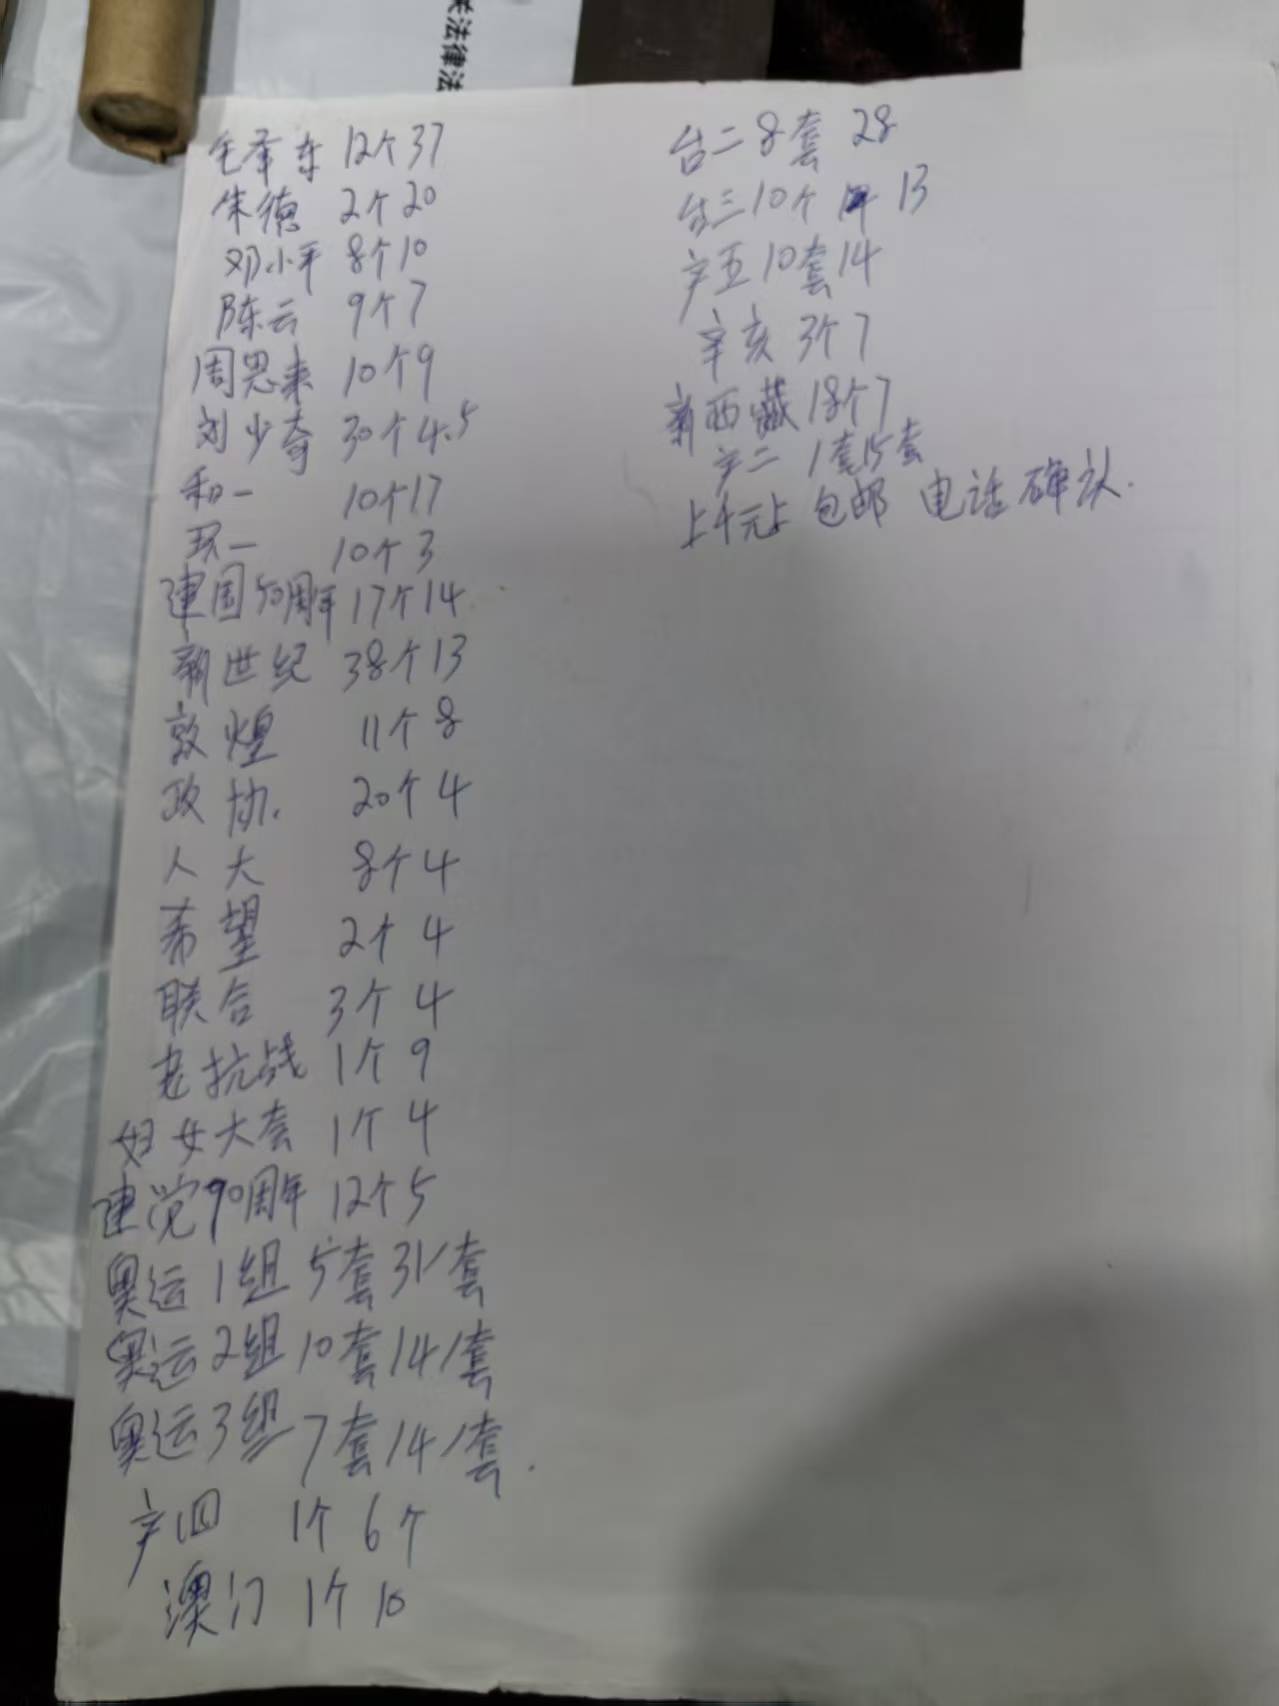 关法律法
毛泽东 12个37
朱德 2个20
邓小平 8个10
陈云 9个7
周恩来 10个9
刘少奇 30个4.5
和一 10个17
环一 10个3
建国50周年 17个14
新世纪 38个13
敦煌 11个8
政协. 20个4
人大 8个4
希望 2个4
联合 3个4
老抗战 1个9
妇女大会 1个4
建党90周年 12个5
奥运1组 5套31/套
奥运2组 10套14/套
奥运3组 7套14/套.
字四 1个6个
澳门 1个10
台二8套 28
台三10个 13
字五10套14
辛亥 3个7
新西藏 18个7
字二 1套15套
上千元上 包邮 电话确认.